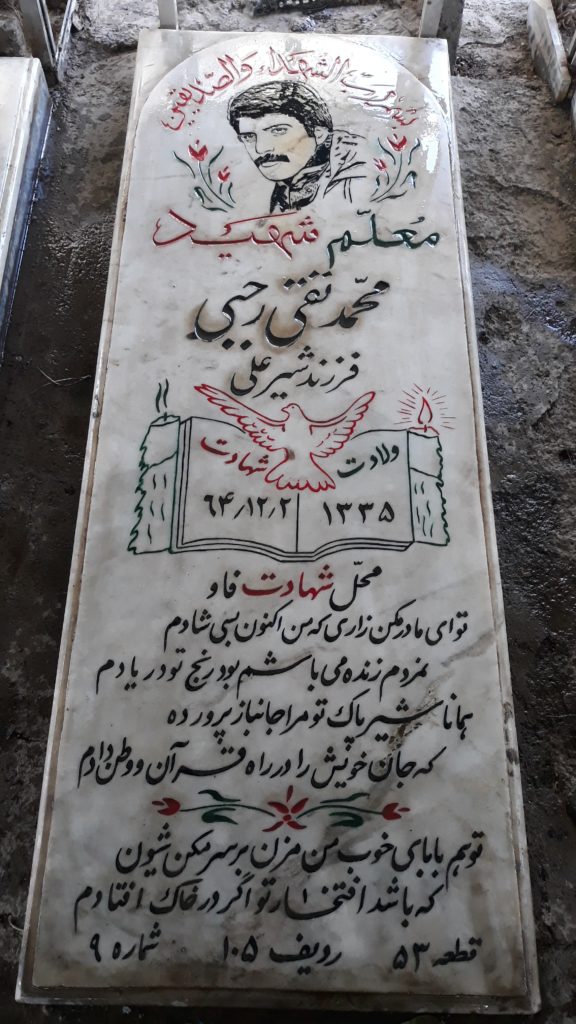 بسم رب الشهداء والصدیقین
معلّم شهید
محمّد تقی رجبی
فرزند شیرعلی
ولادت
۱۳۳۵
شهادت
۶۴٫۱۲٫۲
محلّ شهادت فاو
تو ای مادر مکن زاری که من اکنون بسی شادم
نمردم زنده می باشم بود رنج تو در یادم
همانا شیر پاک تو مرا جانباز پرورده
که جان خویش را در راه قرآن و وطن دادم
تو هم بابای خوب من مزن بر سر مکن شیون
که باشد افتخار تو اگر در خاک افتادم
قطعه ۵۳ ردیف ۱۰۵ شماره ۹